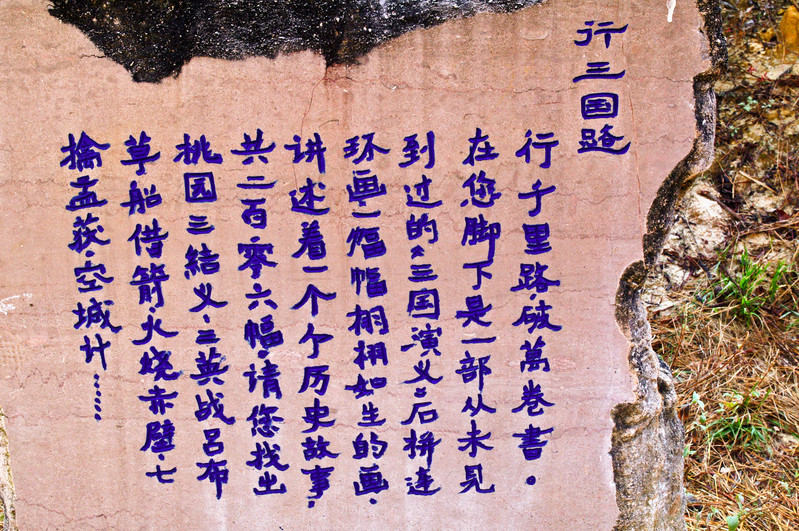 行三国路
行千里路，破萬卷書。
在您脚下是一部从未见
到过的《三国演义》石拼连
环画，一幅幅栩栩如生的画，
讲述着一个个历史故事，
共二百零六幅，请您找出
桃园三結义，三英战吕布
草船借箭，火烧赤壁，七
擒孟获，空城计……